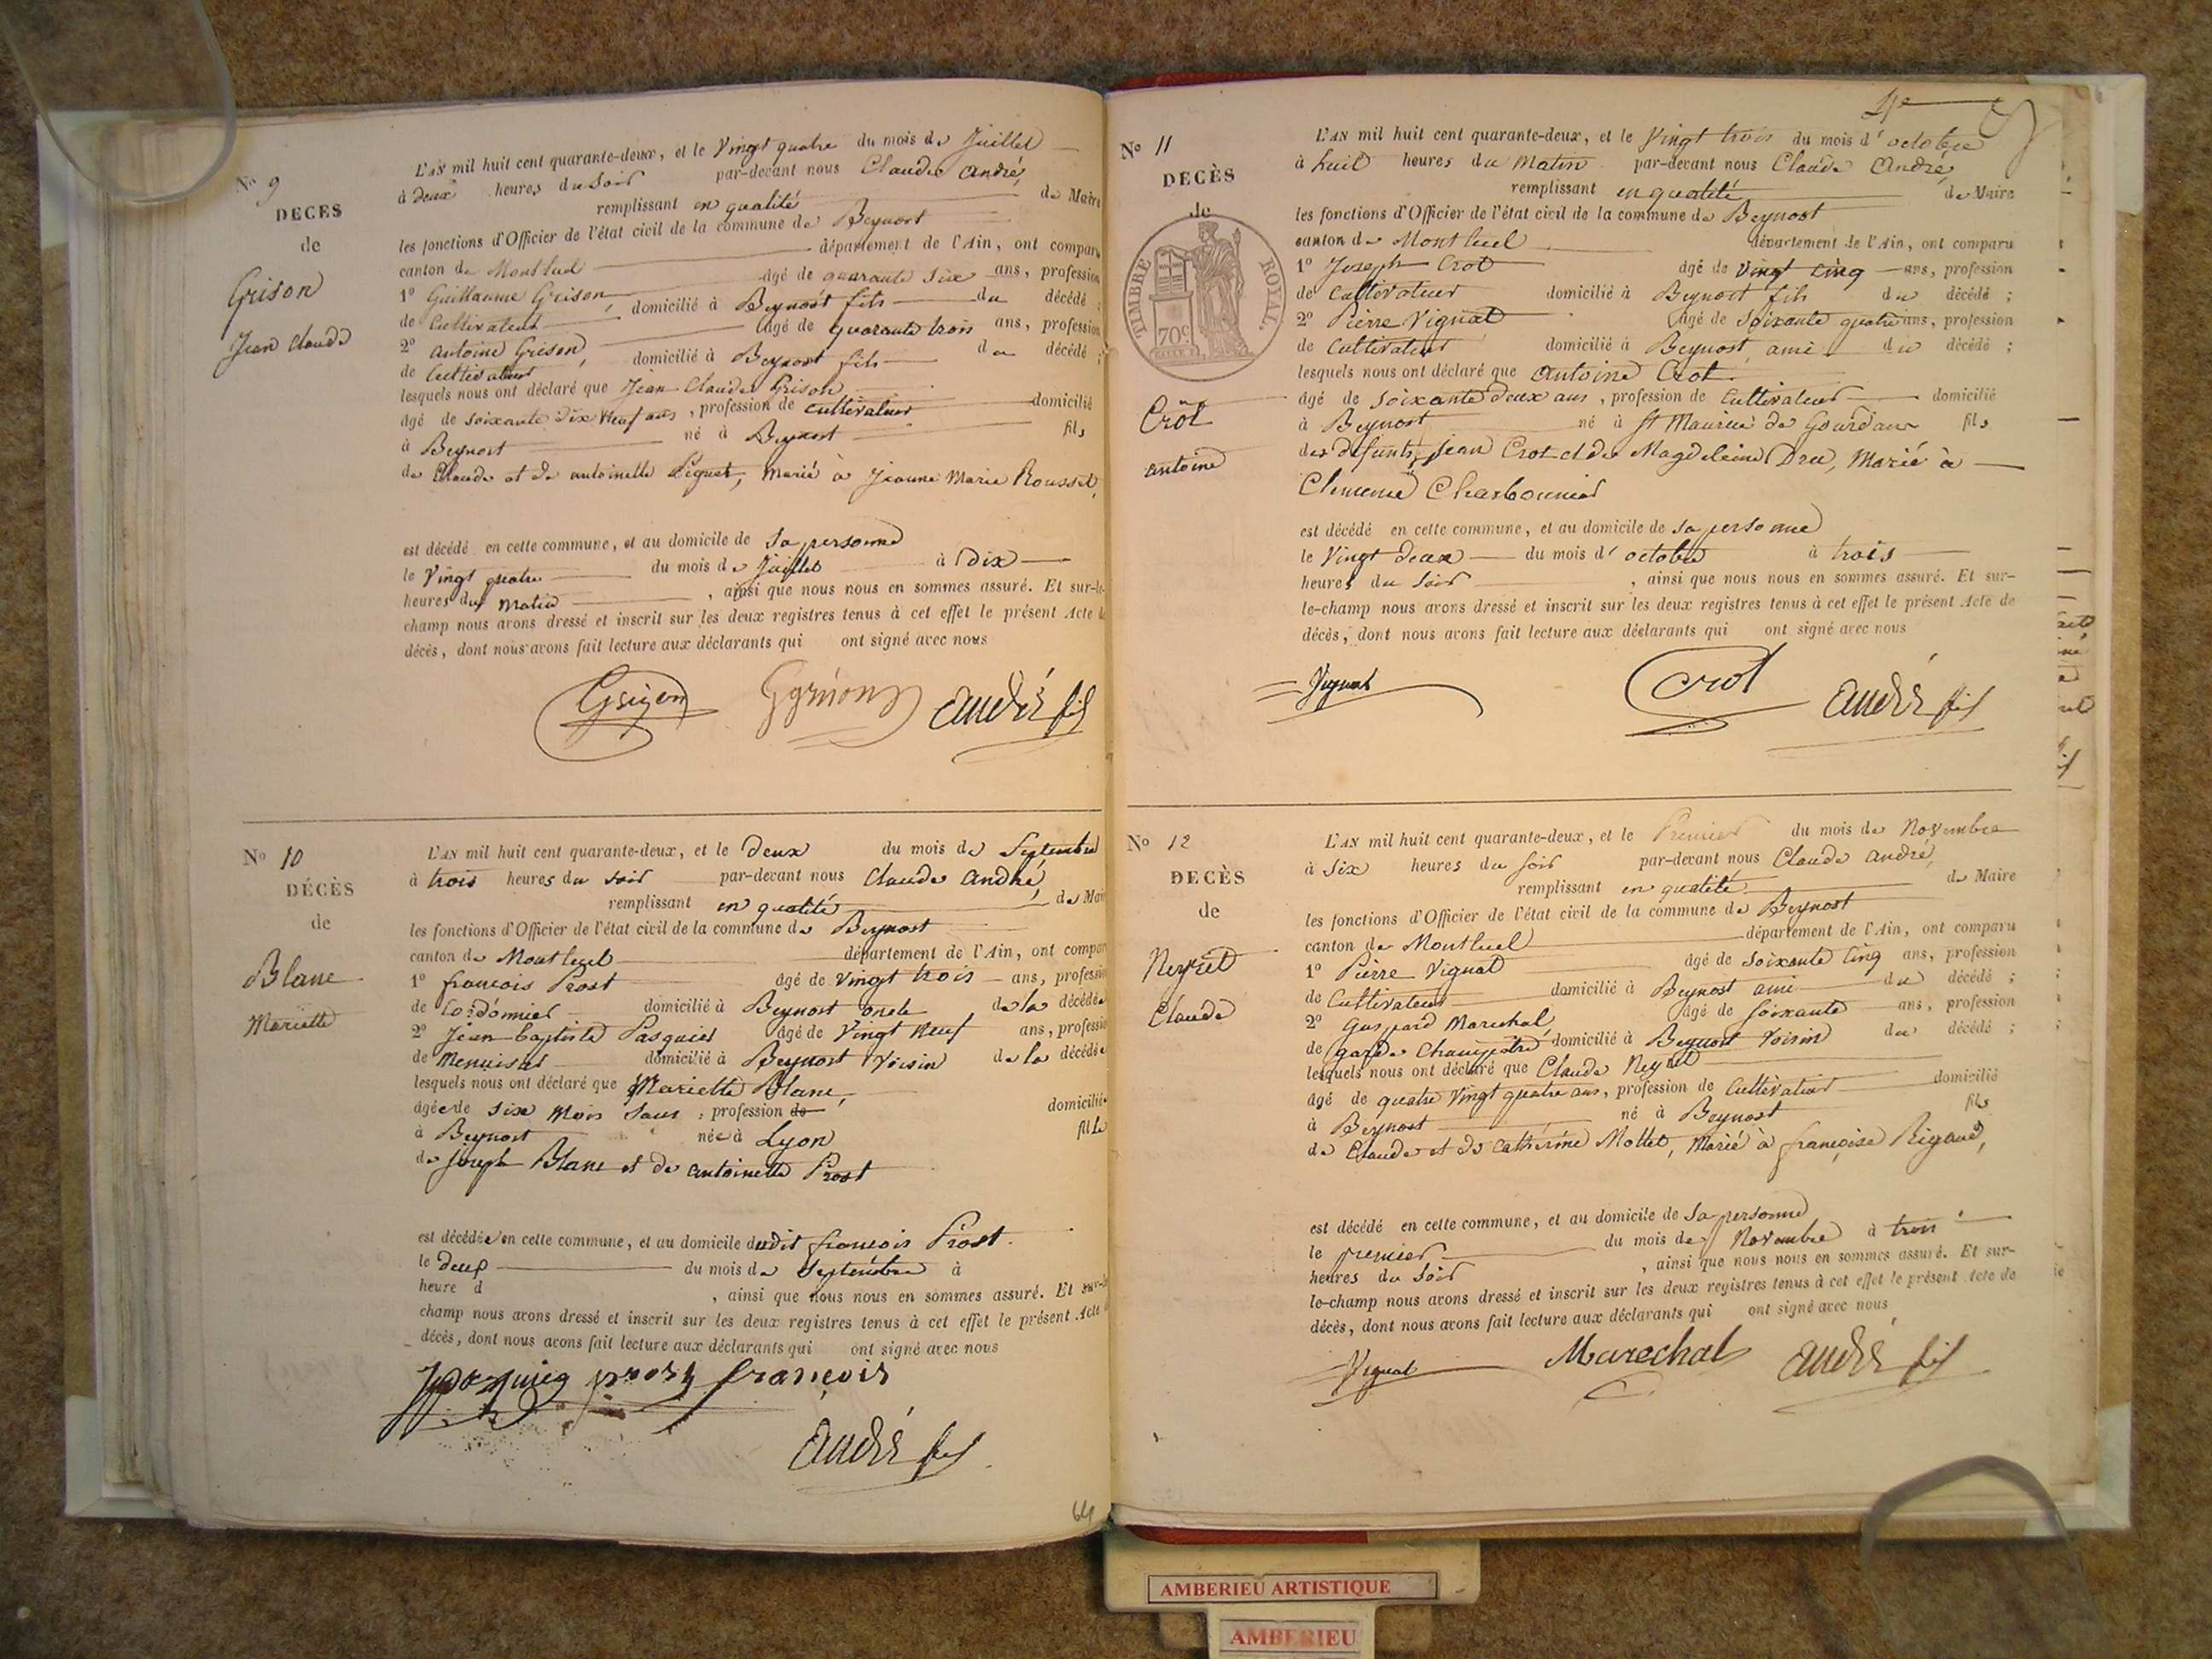 No 9
DECES
de
Grison
Jean Claude
L'AN mil huit cent quarante-deux, et le Vingt quatre du mois de Juillet
à deux heures du Soir par-devant nous Claude André,
remplissant en qualité de Maire
les fonctions d'Officier de l'état civil de la commune de Beynost
canton de Montluel département de l'Ain, ont comparu
1º Guillaume Grison, âgé de quarante Six ans, profession
de Cultivateur domicilié à Beynost fils du décédé ;
2º Antoine Grison, âgé de quarante trois ans, profession
de Cultivateur domicilié à Beynost fils du décédé ;
lesquels nous ont déclaré que Jean Claude Grison
âgé de soixante Dix Neuf ans, profession de cultivateur domicilié
à Beynost né à Beynost fils
de Claude et de antoinette Piquet, Marié à Jeanne Marie Rousset,
est décédé en cette commune, et au domicile de Sa personne
le Vingt quatre du mois de Juillet à Dix
heures du Matin, ainsi que nous nous en sommes assuré. Et sur-le-
champ nous avons dressé et inscrit sur les deux registres tenus à cet effet le présent Acte de
décès, dont nous avons fait lecture aux déclarants qui ont signé avec nous
andré fils
No 10
DÉCÈS
de
Blanc
Mariette
L'AN mil huit cent quarante-deux, et le deux du mois de Septembre
à trois heures du soir par-devant nous Claude André,
remplissant en qualité de Mair
les fonctions d'Officier de l'état civil de la commune de Beynost
canton de Montluel département de l'Ain, ont compar
1º françois Prost âgé de vingt trois ans, profession
de Cordonnier domicilié à Beynost oncle de la décédée
2º Jean baptiste Pasquier âgé de Vingt Neuf ans, profession
de Menuisier domicilié à Beynost Voisin de la décédée
lesquels nous ont déclaré que Mariette Blanc,
âgée de six Mois Sans, profession de domiciliée
à Beynost née à Lyon fille
de joseph Blanc et de antoinette Prost
est décédée en cette commune, et au domicile dudit françois Prost.
le deux du mois de Septembre à
heure d , ainsi que nous nous en sommes assuré. Et sur-le-
champ nous avons dressé et inscrit sur les deux registres tenus à cet effet le présent Acte
décès, dont nous avons fait lecture aux déclarants qui ont signé avec nous
prost françois
andré fils
64
No 11
DECÈS
de
TIMBRE ROYAL.
70c
Crôt
antoine
L'AN mil huit cent quarante-deux, et le Vingt trois du mois d'octobre
à huit heures du Matin par-devant nous Claude André,
remplissant en qualité de Maire
les fonctions d'Officier de l'état civil de la commune de Beynost
canton de Montluel département de l'Ain, ont comparu
1º Joseph Crot âgé de Vingt cinq ans, profession
de Cultivateur domicilié à Beynost fils du décédé ;
2º Pierre Vignat âgé de Soixante quatre ans, profession
de Cultivateur domicilié à Beynost ami du décédé ;
lesquels nous ont déclaré que Antoine Crot.
âgé de Soixante deux ans, profession de Cultivateur domicilié
à Beynost né à St Maurice de Gourdans fils
des défunts Jean Crot et de Magdeleine Dru, Marié à
Clemence Charbonnier
est décédé en cette commune, et au domicile de Sa personne
le Vingt deux du mois d'octobre à trois
heures du Soir, ainsi que nous nous en sommes assuré. Et sur-
le-champ nous avons dressé et inscrit sur les deux registres tenus à cet effet le présent Acte de
décès, dont nous avons fait lecture aux déclarants qui ont signé avec nous
Vignat Crot andré fils
No 12
DECÈS
de
Neyret
Claude
L'AN mil huit cent quarante-deux, et le Premier du mois de Novembre
à Six heures du soir par-devant nous Claude André,
remplissant en qualité de Maire
les fonctions d'Officier de l'état civil de la commune de Beynost
canton de Montluel département de l'Ain, ont comparu
1º Pierre Vignat âgé de Soixante Cinq ans, profession
de Cultivateur domicilié à Beynost ami du décédé ;
2º Gaspard Marechal, âgé de Soixante ans, profession
de garde Champetre domicilié à Beynost Voisin du décédé ;
lesquels nous ont déclaré que Claude Neyret
âgé de quatre Vingt quatre ans, profession de Cultivateur domicilié
à Beynost né à Beynost fils
de Claude et de Catherine Mollet, Marié à françoise Rigaud,
est décédé en cette commune, et au domicile de Sa personne
le premier du mois de Novembre à trois
heures du Soir, ainsi que nous nous en sommes assuré. Et sur-
le-champ nous avons dressé et inscrit sur les deux registres tenus à cet effet le présent Acte de
décès, dont nous avons fait lecture aux déclarants qui ont signé avec nous
Vignat Marechal andré fils
AMBERIEU ARTISTIQUE
AMBERIEU